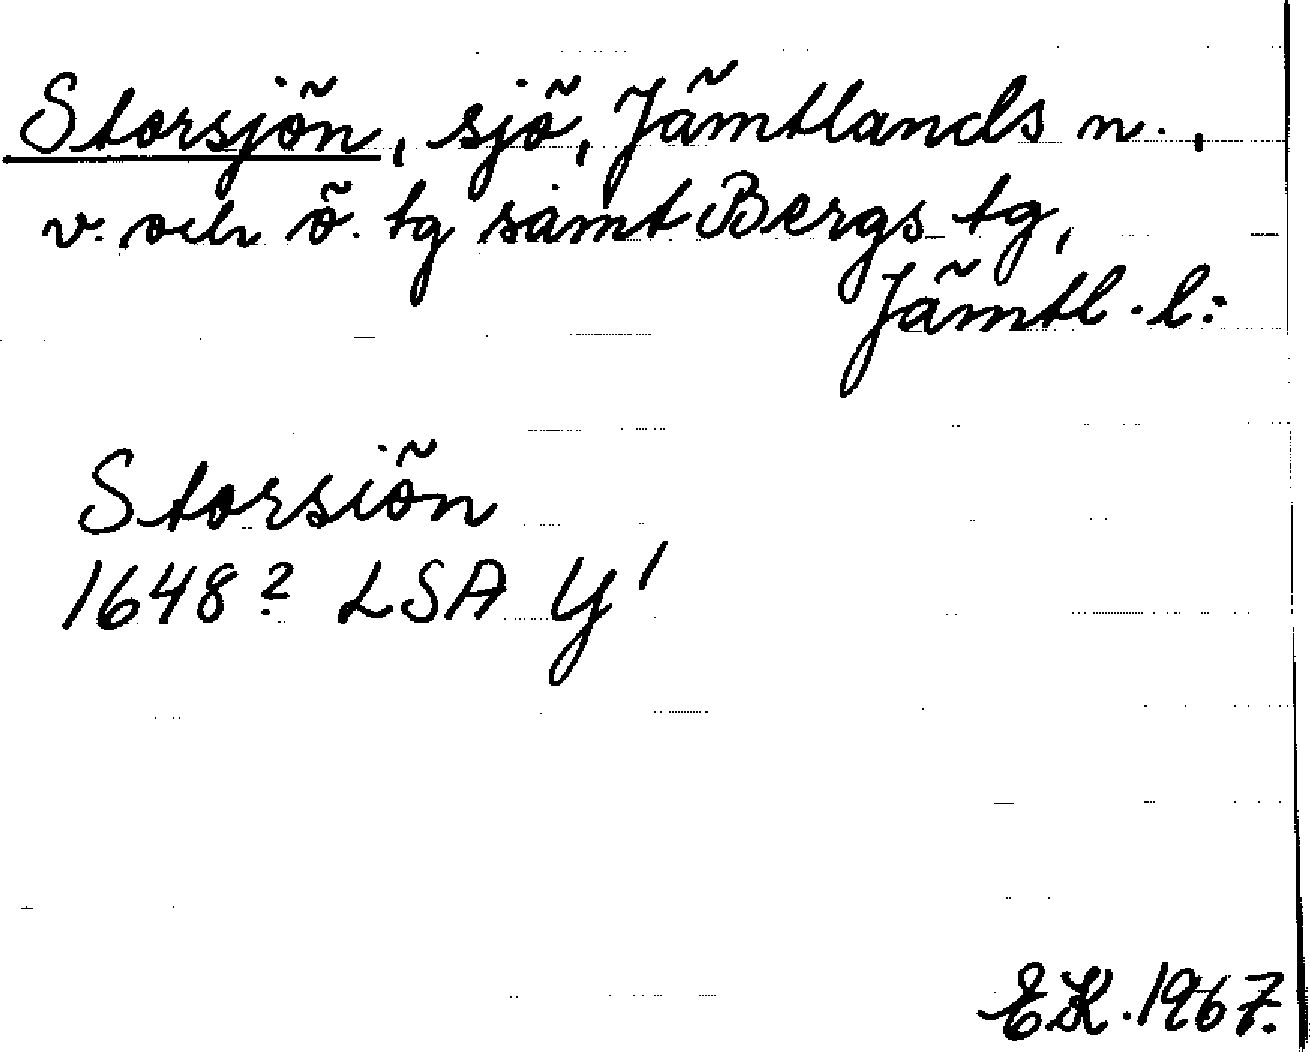 Storsjön, sjö, Jämtlands n.,
v. och ö. tg samt Bergs tg,
Jämtl. l:
Storsiön
1648? LSA Y1
EK. 1967.